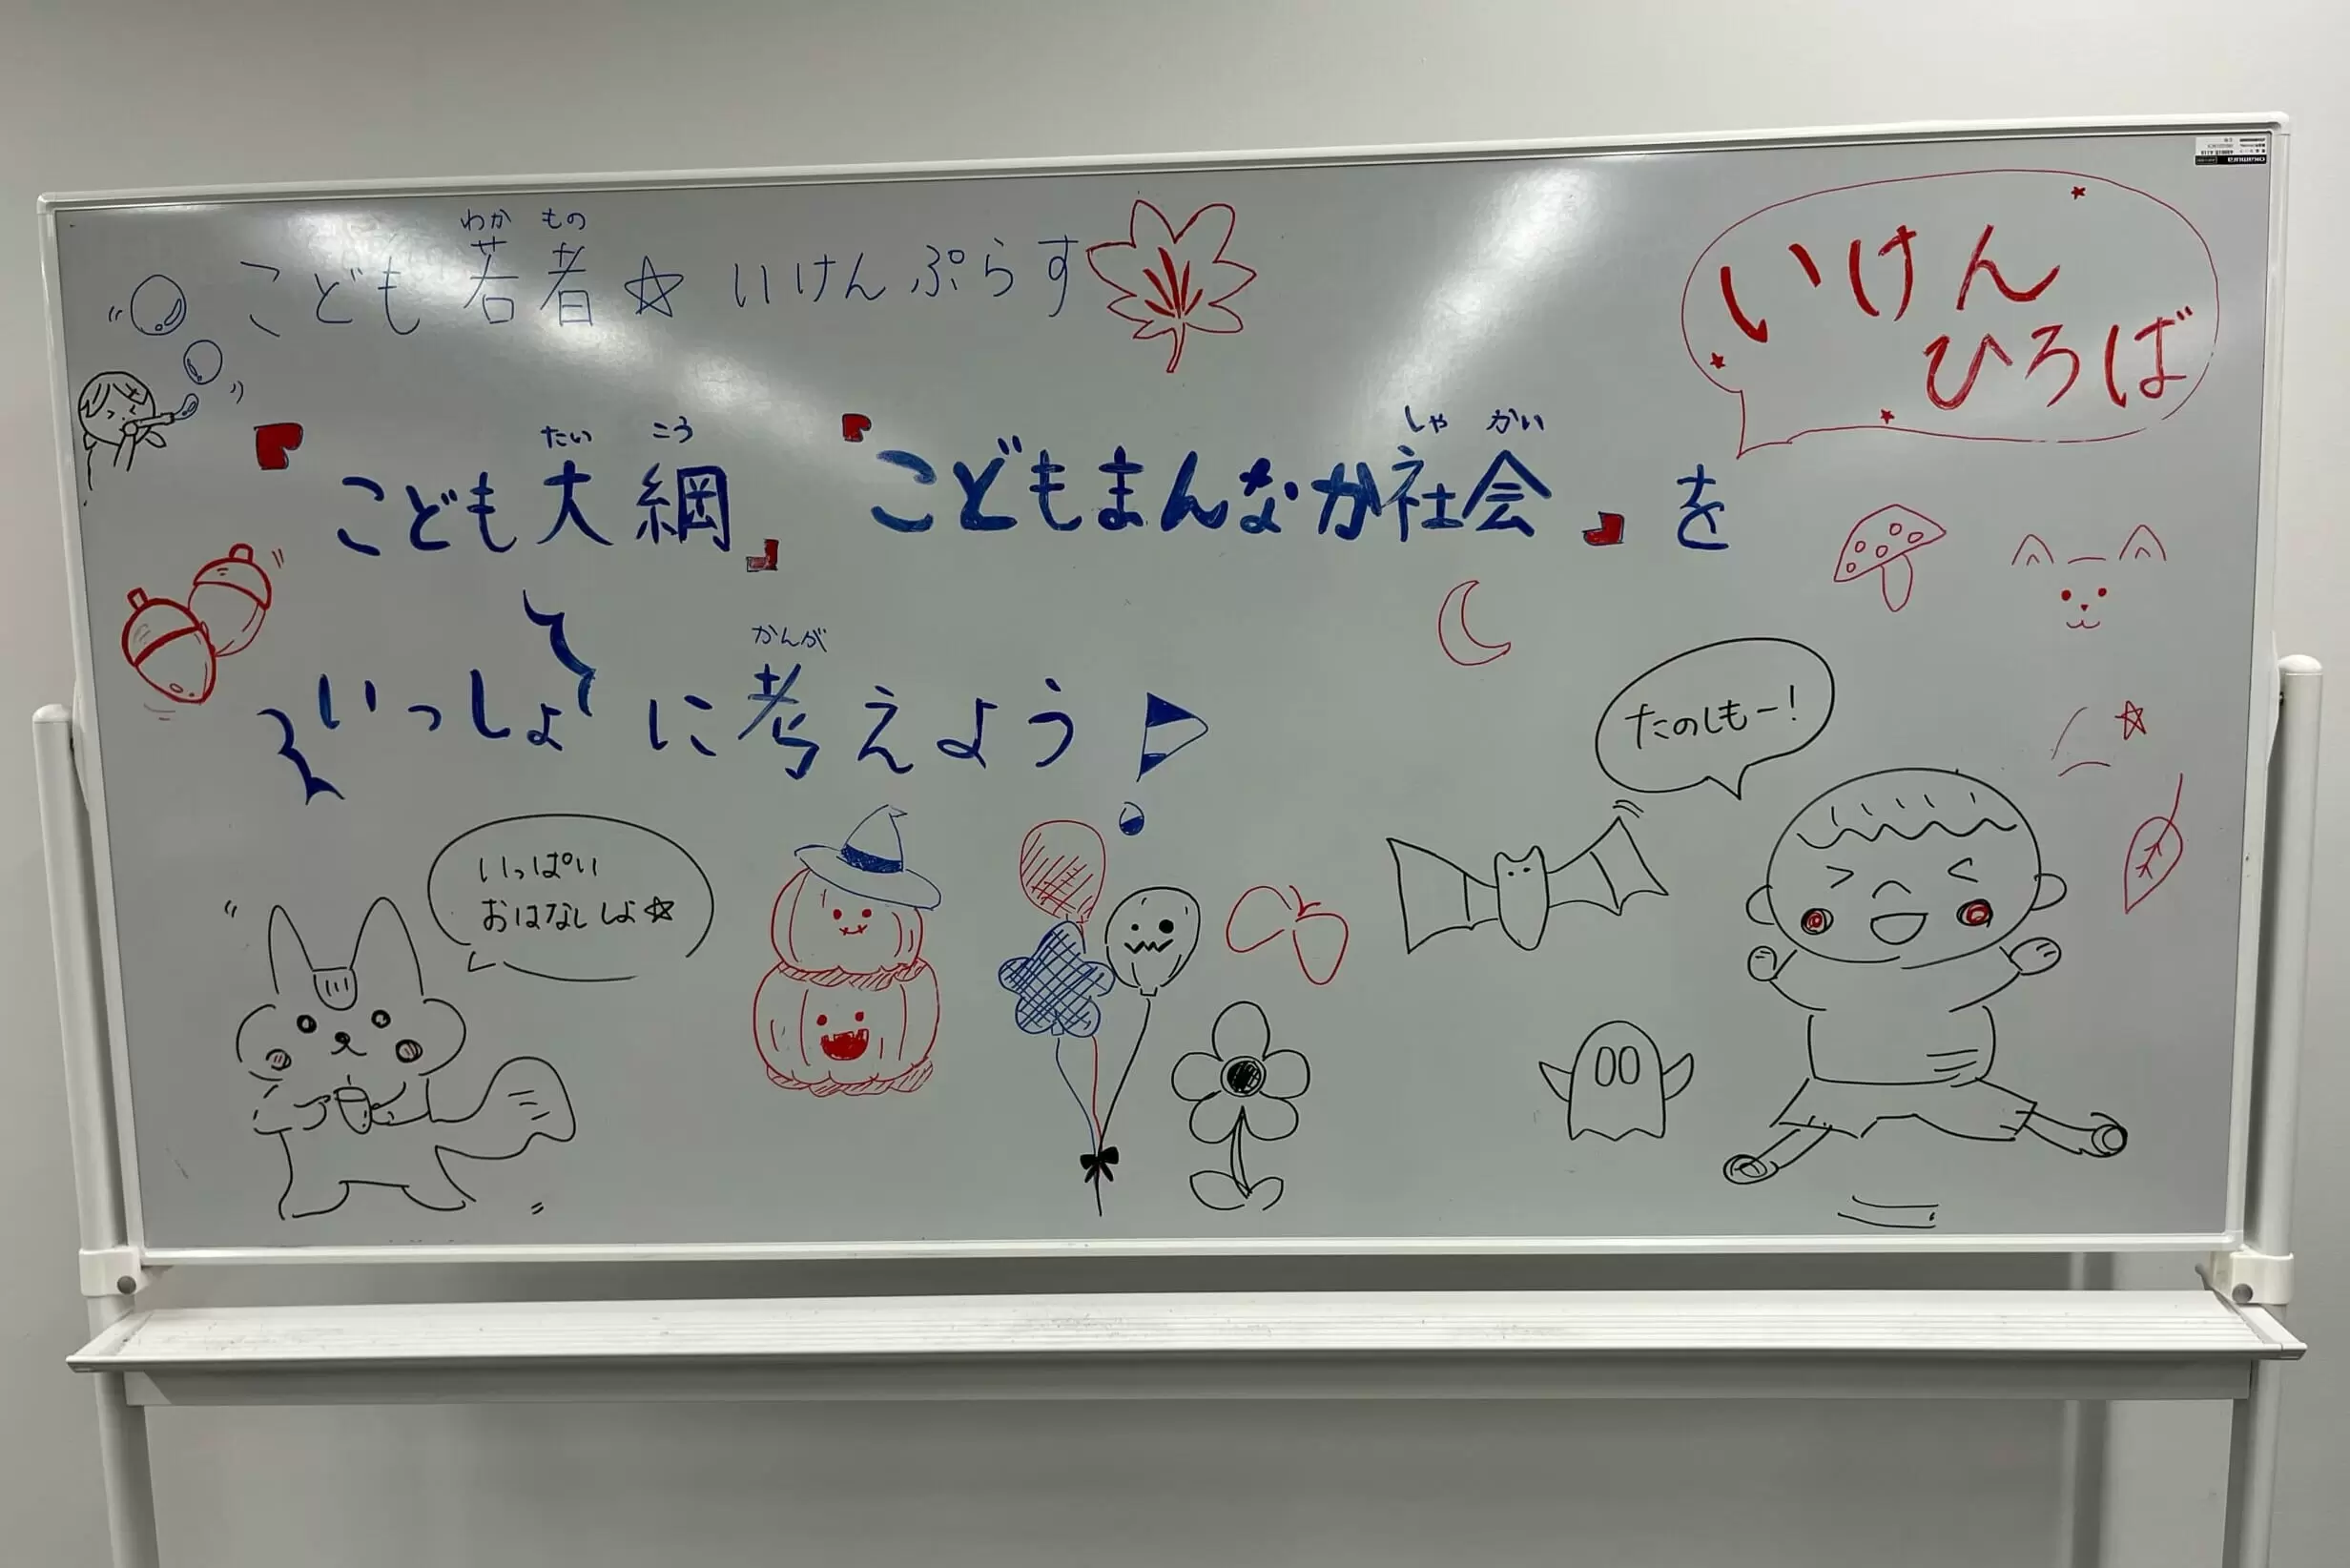 わかもの
こども若者☆いけんぷらす
いけん
ひろば
たいこう
しゃかい
『こども大綱』『こどもまんなか社会』を
かんが
いっしょに考えよう!
たのしもー!
いっぱい
おはなししよ☆